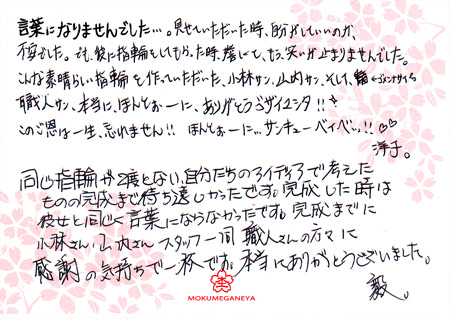 言葉になりませんでした…。見せていただいた時、自分がしていいのか、
不安でした。でも、彼に指輪をしてもらった時、もう、笑いが止まりませんでした。
こんな素晴らしい指輪を作っていただいた、小林サン、山内サン、そして、
職人サン、本当に、ほんとぉーに、ありがとうゴザイマシタ!!
このご恩は一生、忘れません!! ほんとぉーに…サンキューベイベーッ!!♡♡
洋子。
同じ指輪が2度とない、自分たちのアイディアで考えた
ものの完成まで待ち遠しかったです。完成した時は
彼女と同じく言葉にならなかったです。完成までに
小林さん、山内さん スタッフ一同 職人さんの方々に
感謝の気持ちで一杯です。本当にありがとうございました。
毅。
MOKUMEGANEYA